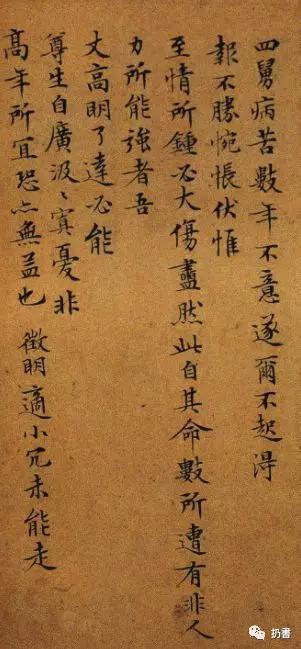 四舅病苦數年不意遂爾不起得
報不勝惋悵伏惟
至情所鍾必大傷盡然此自其命數所遭有非人
力所能強者吾
丈高明了達必能
尊生自廣汲〻寘憂非
高年所宜恐亦無益也 徵明適小冗未能走
扔書